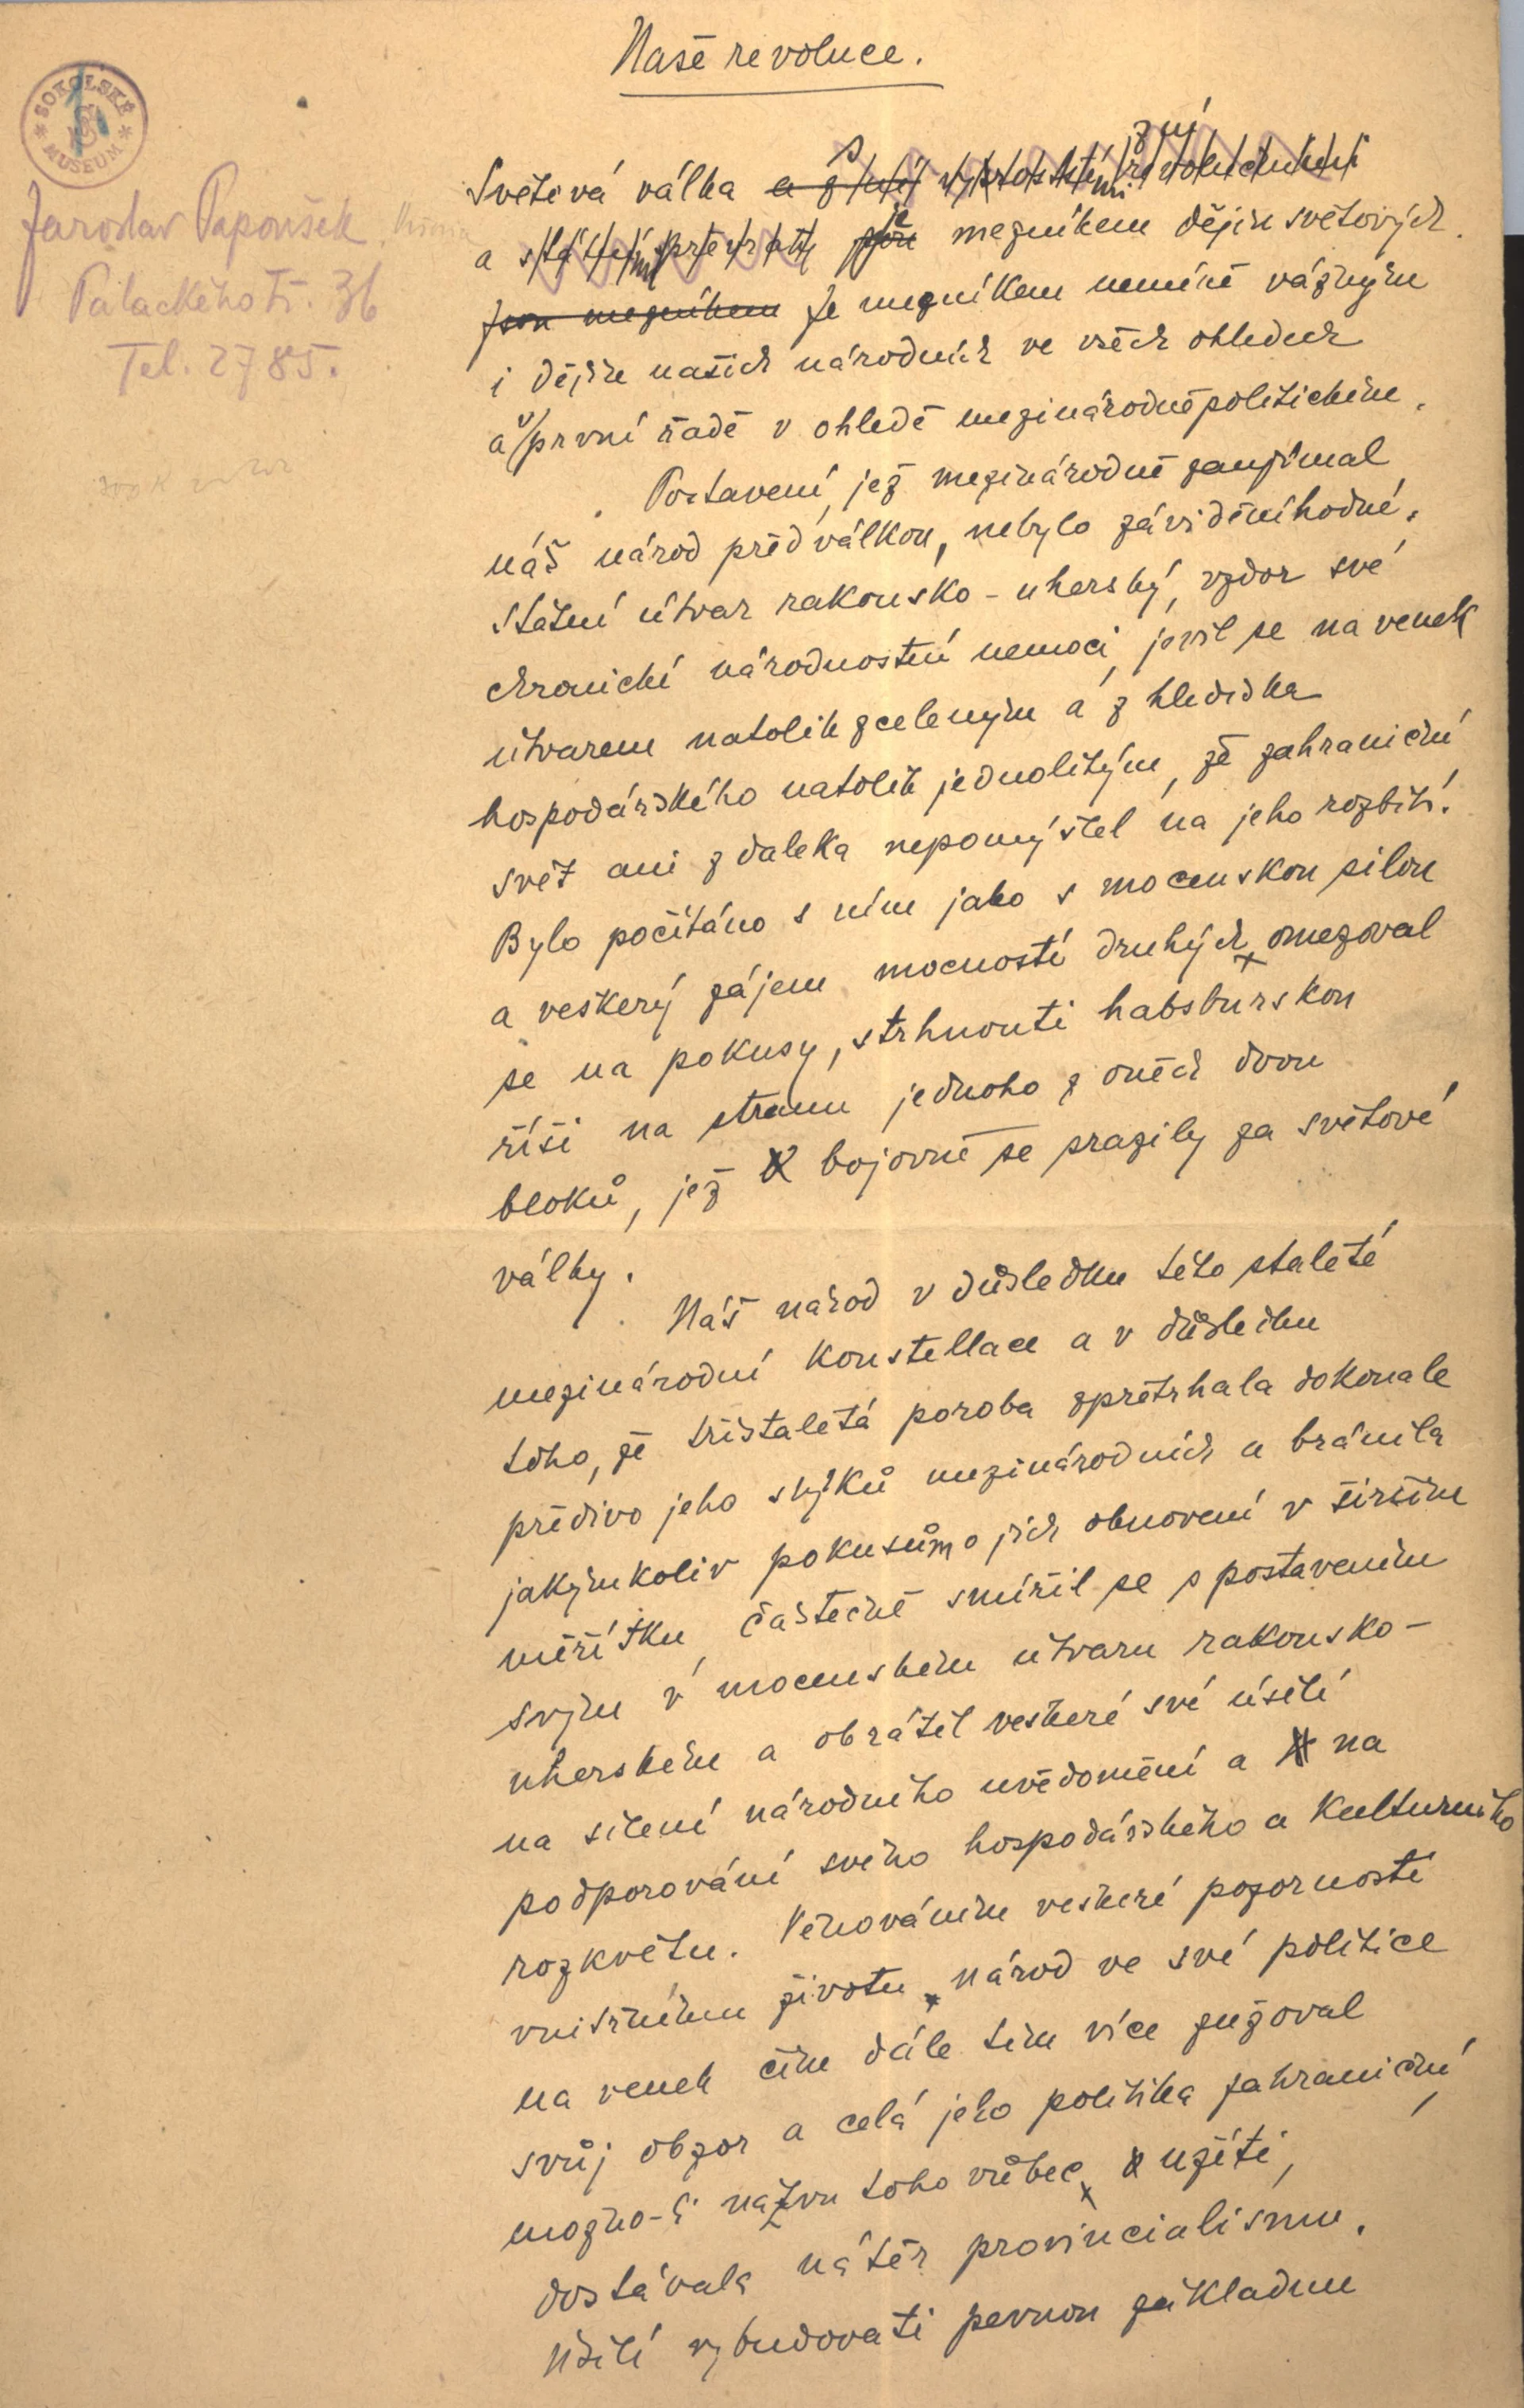 Naše revoluce.
SOKOLSKÉ MUSEUM
Jaroslav Papoušek
Palackého tř. 36
Tel. 2785.
Světová válka a z ní vyrostlými revolučními
a státními převraty jsou je mezníkem dějin světových.
Jsou mezníkem Je mezníkem neméně vážným
i dějin našich národních ve všech ohledech
a v první řadě v ohledě mezinárodněpolitickém.
Postavení, jež mezinárodně zaujímal
náš národ před válkou, nebylo záviděníhodné.
Státní útvar rakousko-uherský, vzdor své
chronické národnostní nemoci, jevil se na venek
útvarem natolik zceleným a z hlediska
hospodářského natolik jednolitým, že zahraniční
svět ani z daleka nepomýšlel na jeho rozbití.
Bylo počítáno s ním jako s mocenskou silou
a veškerý zájem mocností druhých omezoval
se na pokusy, strhnouti habsburskou
říši na stranu jednoho z oněch dvou
bloků, jež bojovně se srazily za světové
války.
Náš národ v důsledku této staleté
mezinárodní konstellace a v důsledku
toho, že třistaletá poroba zpřetrhala dokonale
předivo jeho styků mezinárodních a bránila
jakýmkoliv pokusům o jich obnovení v širším
měřítku, částečně smířil se s postavením
svým v mocenském útvaru rakousko-
uherském a obrátil veškeré své úsilí
na sílení národního uvědomění a na
podporování svého hospodářského a kulturního
rozkvětu. Věnováním veškeré pozornosti
vnitřnímu životu národ ve své politice
na venek čím dále tím více zužoval
svůj obzor a celá jeho politika zahraniční,
možno-li názvu toho vůbec užíti,
dostávala nátěr provincialismu.
Úsilí vybudovati pevnou základnu